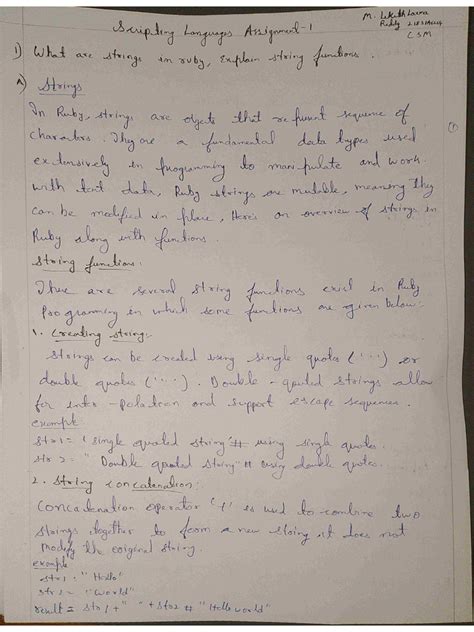 Scripting Languages Assignment-1
M.
Reddy
CSM
1) What are strings in ruby, Explain string functions.
A) Strings
In Ruby, strings are objects that represent sequence of
charators. They are a fundamental data types used
extensively in programming to manipulate and work
with text data, Ruby strings are mutable, meaning they
can be modified in place, Here's an overview of strings in
Ruby along with functions.
String functions:
There are several string functions exist in Ruby
Programming in which some functions are given below:-
1. Creating string:-
Strings can be created using single quotes ('...') or
double quotes ("..."). Double-quoted strings allow
for inter-polation and support escape sequences.
example
str1 = 'single quoted string' # using single quotes.
str 2 = " Double quoted string" # using double quotes.
2. String concatenation:
Concatenation operator '+' is used to combine two
strings together to form a new string, it does not
modify the original string.
example
str1 = "Hello"
str2 = "World"
result = str1 + " " + str2 # "Hello world"